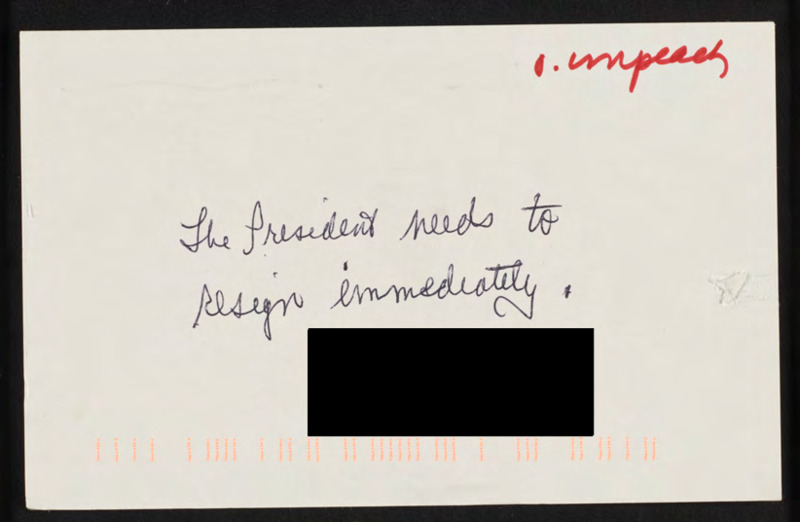 1. impeach
The President needs to
resign immediately.